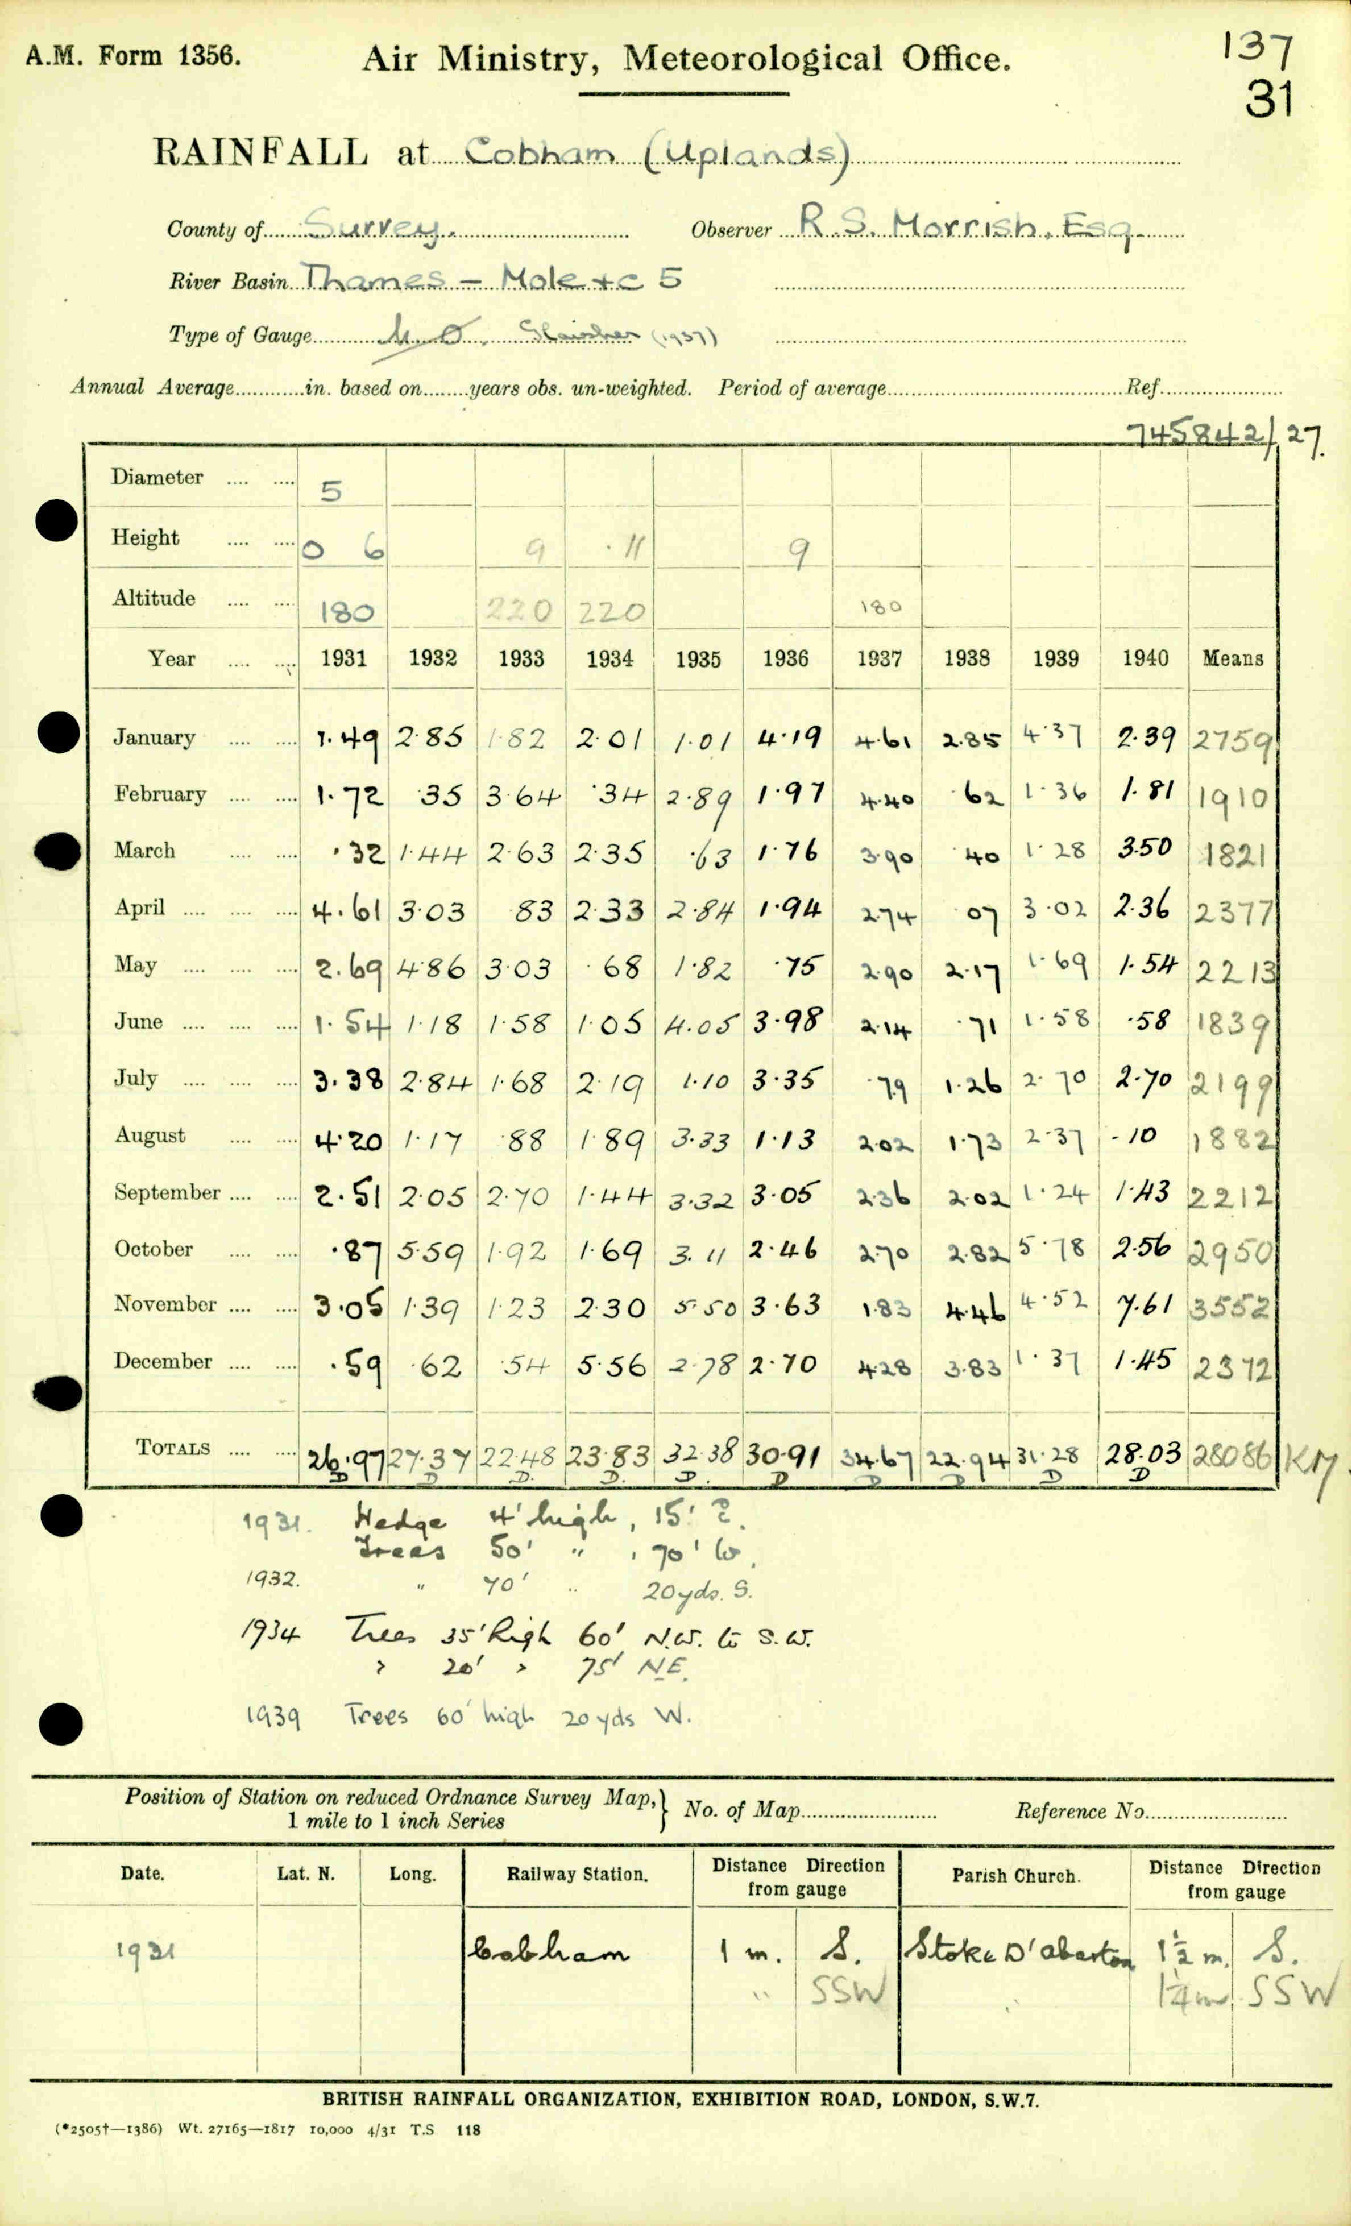 A.M. Form 1356. Air Ministry, Meteorological Office. 137
31
RAINFALL at Cobham (Uplands)
County of Surrey. Observer R.S. Morrish. Esq.
River Basin Thames - Mole +c 5
Type of Gauge M.O. Glaisher (1937)
Annual Average in. based on years obs. un-weighted. Period of average Ref.
745842/27.
Diameter 5
Height 0 6 9 .11 9
Altitude 180 220 220 180
Year 1931 1932 1933 1934 1935 1936 1937 1938 1939 1940 Means
January 1.49 2.85 1.82 2.01 1.01 4.19 4.61 2.85 4.37 2.39 2759
February 1.72 .35 3.64 .34 2.89 1.97 4.40 .62 1.36 1.81 1910
March .32 1.44 2.63 2.35 .63 1.76 3.90 .40 1.28 3.50 1821
April 4.61 3.03 83 2.33 2.84 1.94 2.74 07 3.02 2.36 2377
May 2.69 4.86 3.03 .68 1.82 .75 2.90 2.17 1.69 1.54 2213
June 1.54 1.18 1.58 1.05 4.05 3.98 2.14 .71 1.58 .58 1839
July 3.38 2.84 1.68 2.19 1.10 3.35 .79 1.26 2.70 2.70 2199
August 4.20 1.17 .88 1.89 3.33 1.13 2.02 1.73 2.37 .10 1882
September 2.51 2.05 2.70 1.44 3.32 3.05 2.36 2.02 1.24 1.43 2212
October .87 5.59 1.92 1.69 3.11 2.46 2.70 2.82 5.78 2.56 2950
November 3.05 1.39 1.23 2.30 5.50 3.63 1.83 4.46 4.52 7.61 3552
December .59 .62 .54 5.56 2.78 2.70 4.28 3.83 1.37 1.45 2372
TOTALS 26.97 27.37 22.48 23.83 32.38 30.91 34.67 22.94 31.28 28.03 28086 KM
D D D. D. D. D D D D D
1931. Hedge 4' high, 15' E.
Trees 50' " , 70' W.
1932. " 70' " 20yds. S.
1934 Trees 35' high 60' N.W. to S.W.
" 20' " 75' N.E.
1939 Trees 60' high 20 yds W.
Position of Station on reduced Ordnance Survey Map, } No. of Map Reference No.
1 mile to 1 inch Series
Date. Lat. N. Long. Railway Station. Distance Direction from gauge Parish Church. Distance Direction from gauge
1931 Cobham 1 m. S. Stoke D'abarton 1½ m. S.
" SSW " 1¼ m SSW
BRITISH RAINFALL ORGANIZATION, EXHIBITION ROAD, LONDON, S.W.7.
(*2505†—1386) Wt. 27165—1817 10,000 4/31 T.S 118